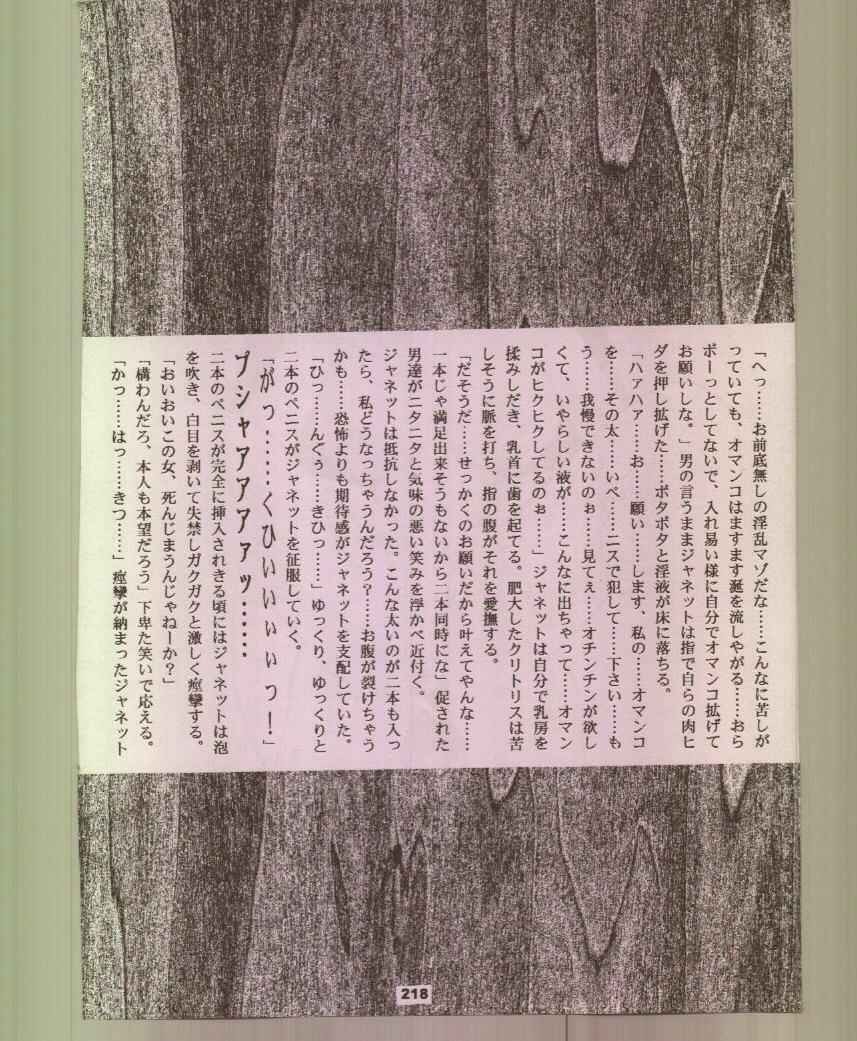 「へっ……お前底無しの淫乱マゾだな……こんなに苦しが
っていても、オマンコはますます涎を流しやがる……おら
ボーっとしてないで、入れ易い様に自分でオマンコ拡げて
お願いしな。」男の言うままジャネットは指で自らの肉ヒ
ダを押し拡げた……ボタボタと淫液が床に落ちる。
「ハァハァ……お……願い……します、私の……オマンコ
を……その太……いペ……ニスで犯して……下さい……も
う……我慢できないのぉ……見てぇ……オチンチンが欲し
くて、いやらしい液が……こんなに出ちゃって……オマン
コがヒクヒクしてるのぉ……」ジャネットは自分で乳房を
揉みしだき、乳首に歯を起てる。肥大したクリトリスは苦
しそうに脈を打ち、指の腹がそれを愛撫する。
「だそうだ……せっかくのお願いだから叶えてやんな……
一本じゃ満足出来そうもないから二本同時にな」促された
男達がニタニタと気味の悪い笑みを浮かべ近付く。
ジャネットは抵抗しなかった。こんな太いのが二本も入っ
たら、私どうなっちゃうんだろう?……お腹が裂けちゃう
かも……恐怖よりも期待感がジャネットを支配していた。
「ひっ……んぐぅ……きひっ……」ゆっくり、ゆっくりと
二本のペニスがジャネットを征服していく。
「がっ……くひぃぃぃぃっ!」
プシャアアアアァッ……
二本のペニスが完全に挿入されきる頃にはジャネットは泡
を吹き、白目を剥いて失禁しガクガクと激しく痙攣する。
「おいおいこの女、死んじまうんじゃねーか?」
「構わんだろ、本人も本望だろう」下卑た笑いで応える。
「かっ……はっ……きつ……」痙攣が納まったジャネット
218